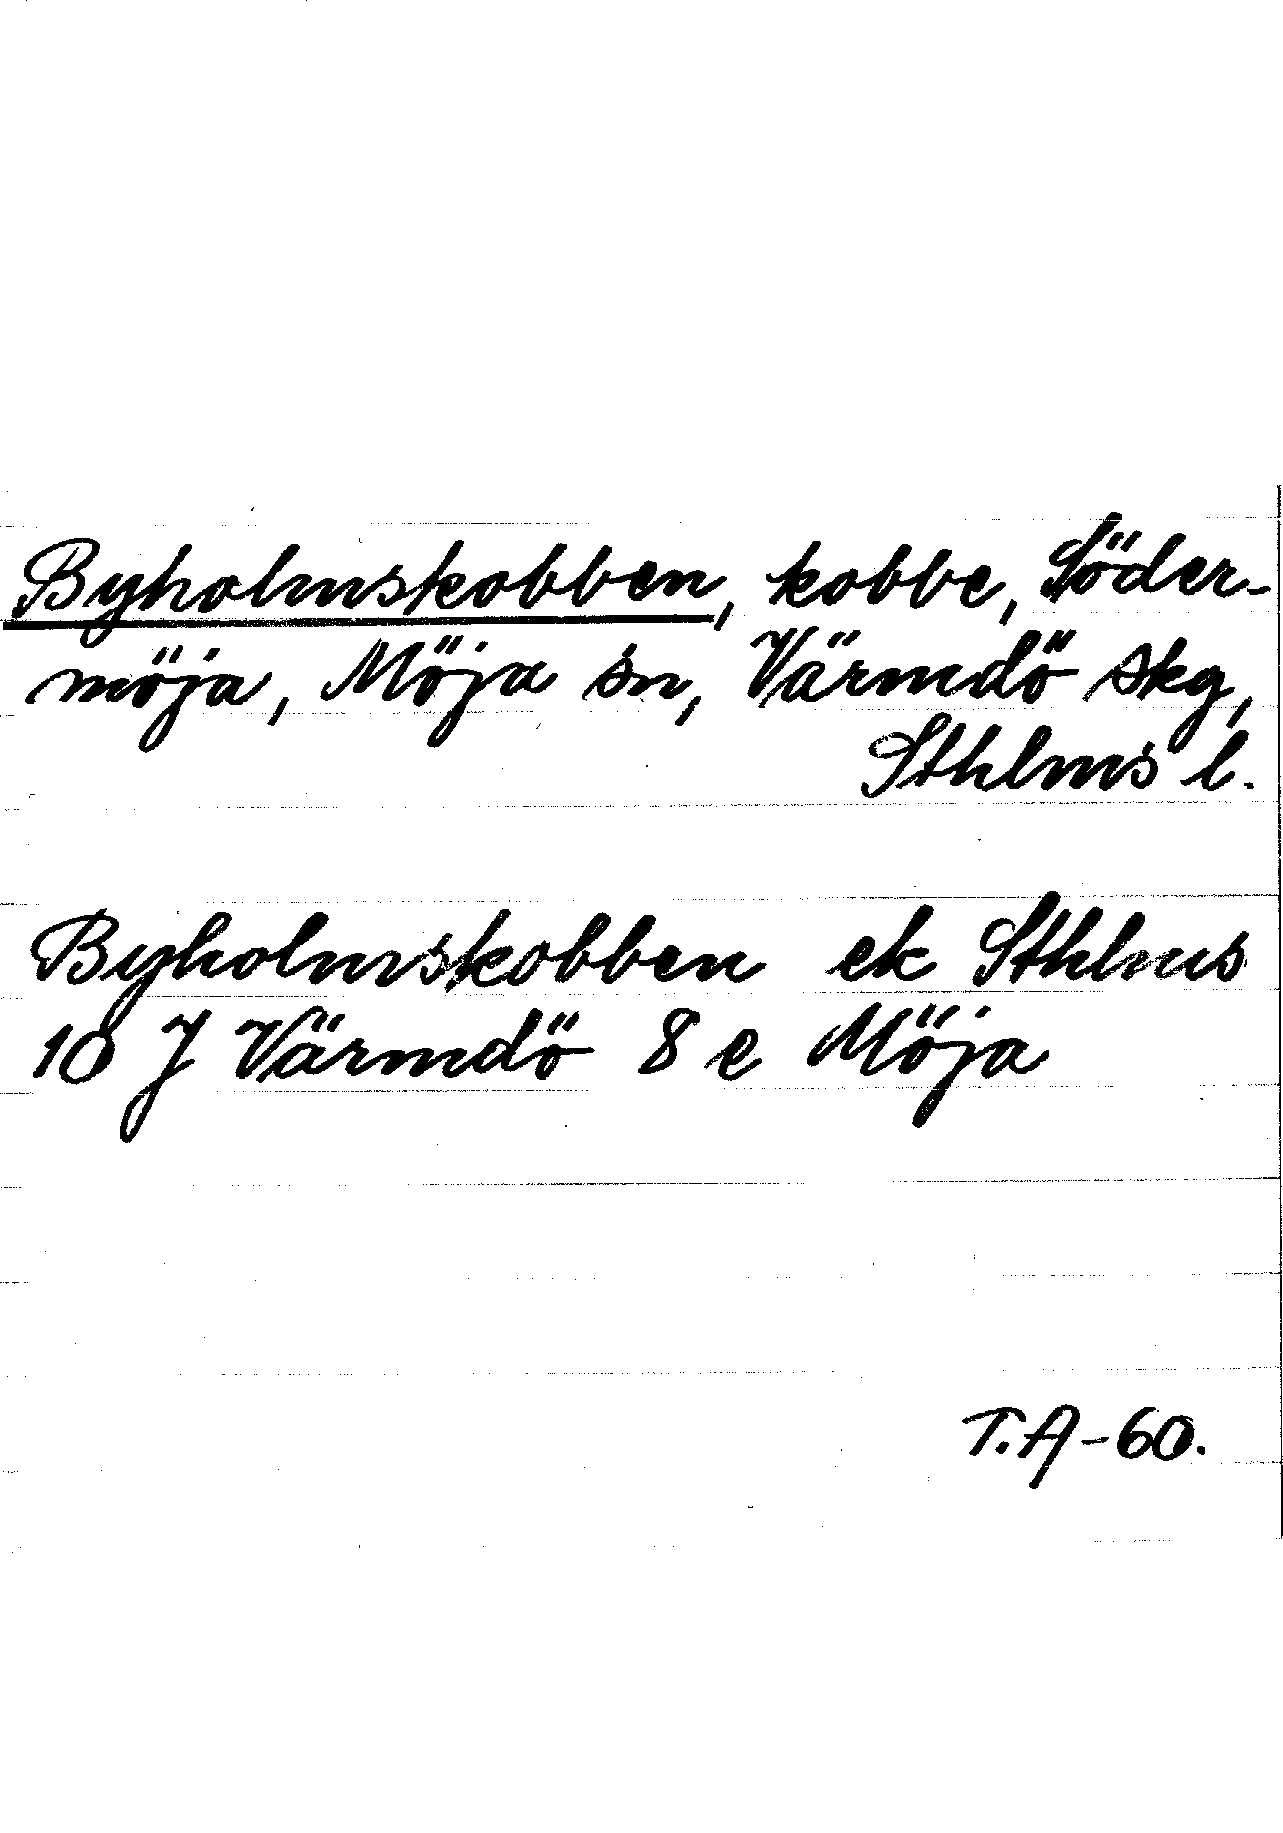 Byholmskobben, kobbe, Söder-
möja, Möja sn, Värmdö skg,
Sthlms l.
Byholmskobben ek Sthlms
10 J Värmdö 8 e Möja
T.A-60.